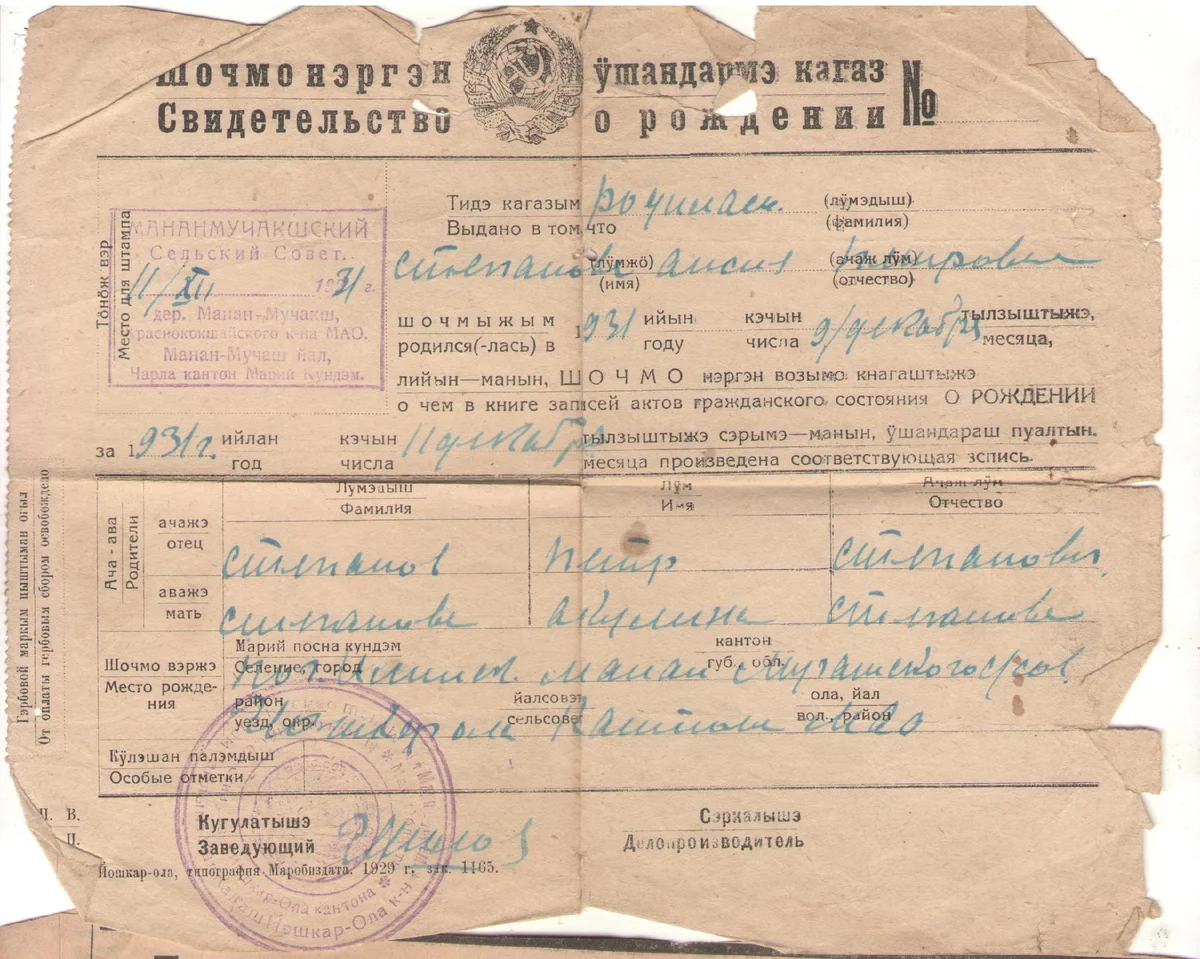 Шочмо нэргэн ӱшандармэ кагаз
Свидетельство о рождении №
Тӧнӧж вэр
Место для штампа
МАНАНМУЧАКШСКИЙ
Сельский Совет.
11/XII 1931 г.
дер. Манан-Мучакш,
Краснококшайского к-на МАО.
Манан-Мучаш йал,
Чарла кантон Марий Кундэм.
Тидэ кагазым (лӱмэдыш)
Выдано в том, что (фамилия)
Степанова (лӱмжӧ) (ачаж лӱм)
(имя) (отчество)
шочмыжым 1931 ийын кэчын 9/декабря тылзыштыжэ,
родился(-лась) в году числа месяца,
лийын—манын, ШОЧМО нэргэн возымо кнагаштыжэ
о чем в книге записей актов гражданского состояния О РОЖДЕНИИ
за 1931 г. ийлан кэчын 11 декабря тылзыштыжэ сэрымэ—манын, ӱшандараш пуалтын.
год числа месяца произведена соответствующая зспись.
Лӱмэдыш Лӱм Ачаж лӱм
Фамилия Имя Отчество
Ача - ава
Родители
ачажэ
отец
Степанов Петр Степанович
аважэ
мать
Степанова Акулина Степанова
Шочмо вэржэ
Место рождения
Марий посна кундэм кантон
Селение, город губ., обл.
район йалсовэт ола, йал
уезд, окр. сельсовет вол., район
Кантон МАО
Кӱлэшан палэмдыш
Особые отметки
Гэрбовой маркым пыштыман огыл
От оплаты гербовым сбором освобождено
П. В.
П.
Кугулатышэ
Заведующий
Сэркалышэ
Делопроизводитель
Йошкар-ола, типография Маробиздата. 1929 г. зак. 1165.